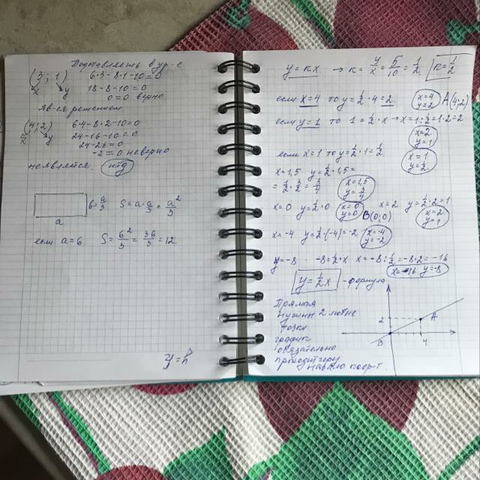 Подставляешь в ур-е
(3; 1) 6·3-8·1-10=0
x y 18-8-10=0
0=0 верно
яв-ся решением
(4; 2) 6·4-8·2-10=0
x y 24-16-10=0
24-26=0
-2=0 неверно
не является
b=a/3 S=a·a/3=a²/3
a
если a=6 S=6²/3=36/3=12
y=kx → k=y/x=5/10=1/2 k=1/2
если x=4 то y=1/2·4=2 x=4 y=2 A(4;2)
если y=1 1=1/2·x → x=1:1/2=1·2=2
x=2 y=1
если x=1 то y=1/2·1=1/2 x=1 y=1/2
x=1,5 y=1/2·1,5=
=1/2·3/2=3/4 x=1,5 y=3/4
x=0 y=1/2·0 x=0 y=0 x=2 y=1/2·2=1
B(0;0) x=2 y=1
x=-4 y=1/2·(-4)=-2 x=-4 y=-2
y=-8 -8=1/2·x x=-8:1/2=-8·2=-16
x=-16 y=-8
y=1/2x - формула
Прямая
нужны 2 любые
точки
график
обязательно
проходит через
начало коор-т
2 A
B 4